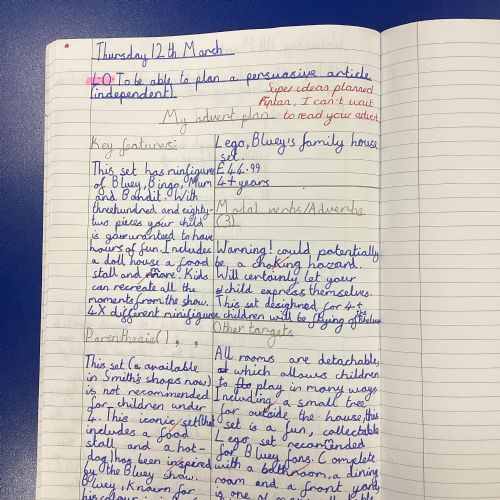 Thursday 12th March
L.O To be able to plan a persuasive article
(independent).
Super ideas planned
Pan, I can't wait
to read your advert.
My advert plan
Key features:
This set has minifigures
of Bluey, Bingo, Mum
and Bandit. With
threehundred and eighty-
two pieces your child
is to have
hours of fun. Includes
a doll house a food
stall and more. Kids
can recreate all the
moments from the show.
4X different minifigures
Parenthesis ( ) , ,
This set (is available
in Smiths shops now)
is not recommended
for children under
4. This iconic set (that
includes a food
stall and a hot-
dog) has been inspired
by the Bluey show.
Bluey, Known for
his
Lego, Bluey's family house
set.
£44.99
4+ years
Modal verbs/Adverbs
(3)
Warning! could potentially
be a choking hazard.
Will certainly let your
child express themselves.
This set desighned for 4+
children will be flying off the shelves
Other targets
All rooms are detachable,
which allows children
to play in many ways.
Including a small tree
for outside the house, this
set is a fun, collectable
Lego set
for Bluey fans. Complete
with a bathroom, a dining
room and a front yard,
is one of